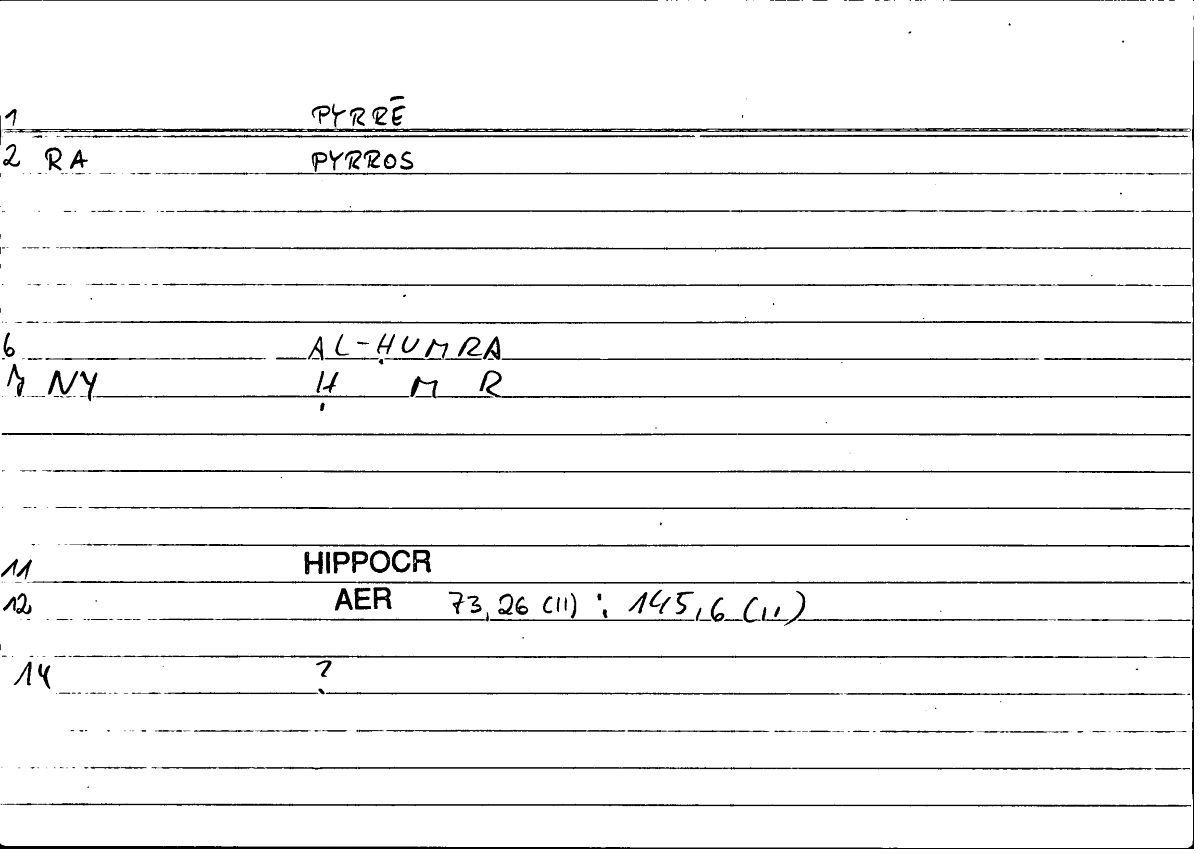 1 PYRRĒ
2 RA PYRROS
6 AL-ḤUMRA
7 NY Ḥ M R
11 HIPPOCR
12 AER 73,26 (11) : 145,6 (11)
14 ?